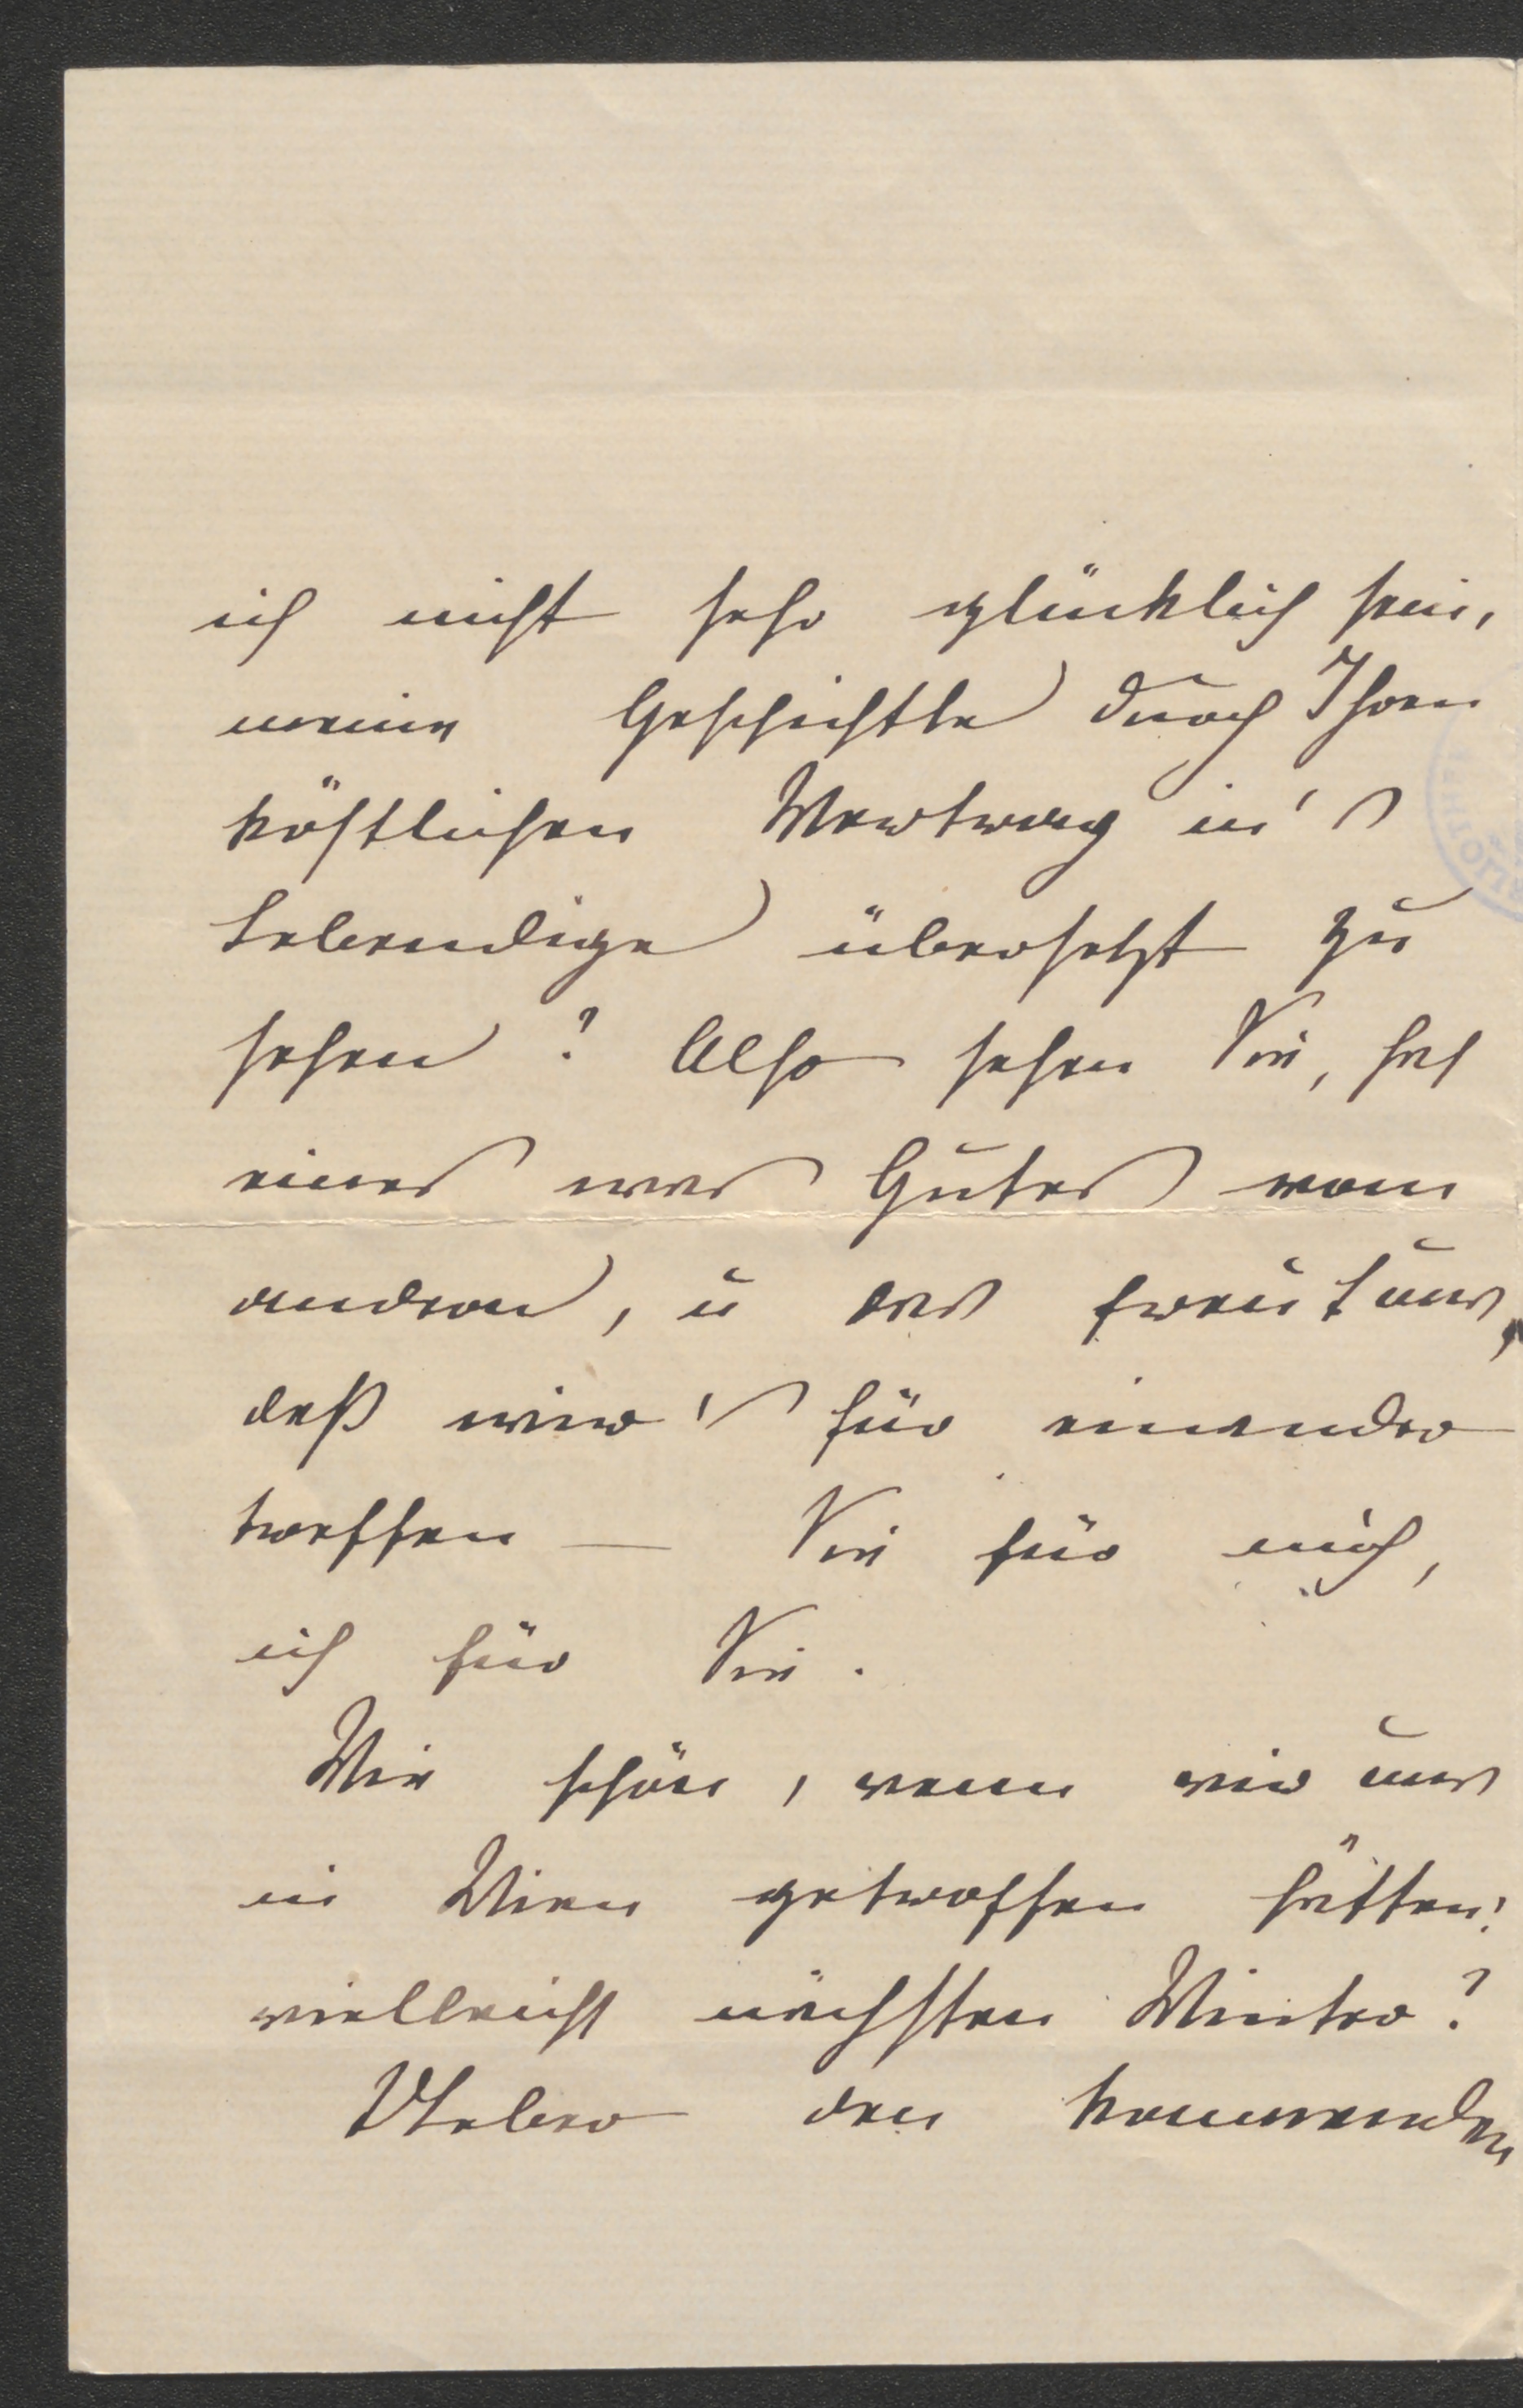 ich nicht sehr glücklich sein,
meine Geschichtle durch Ihren
köstlichen Vortrag in's
Lebendige übersetzt zu
sehen? Also sehen Sie, hat
eines was Gutes vom
andren, u das freut uns,
daß wir's für einander
treffen — Sie für mich,
ich für Sie.
Wie schön, wenn wir uns
in Wien getroffen hätten!
vielleicht nächsten Winter?
Ueber den kommenden